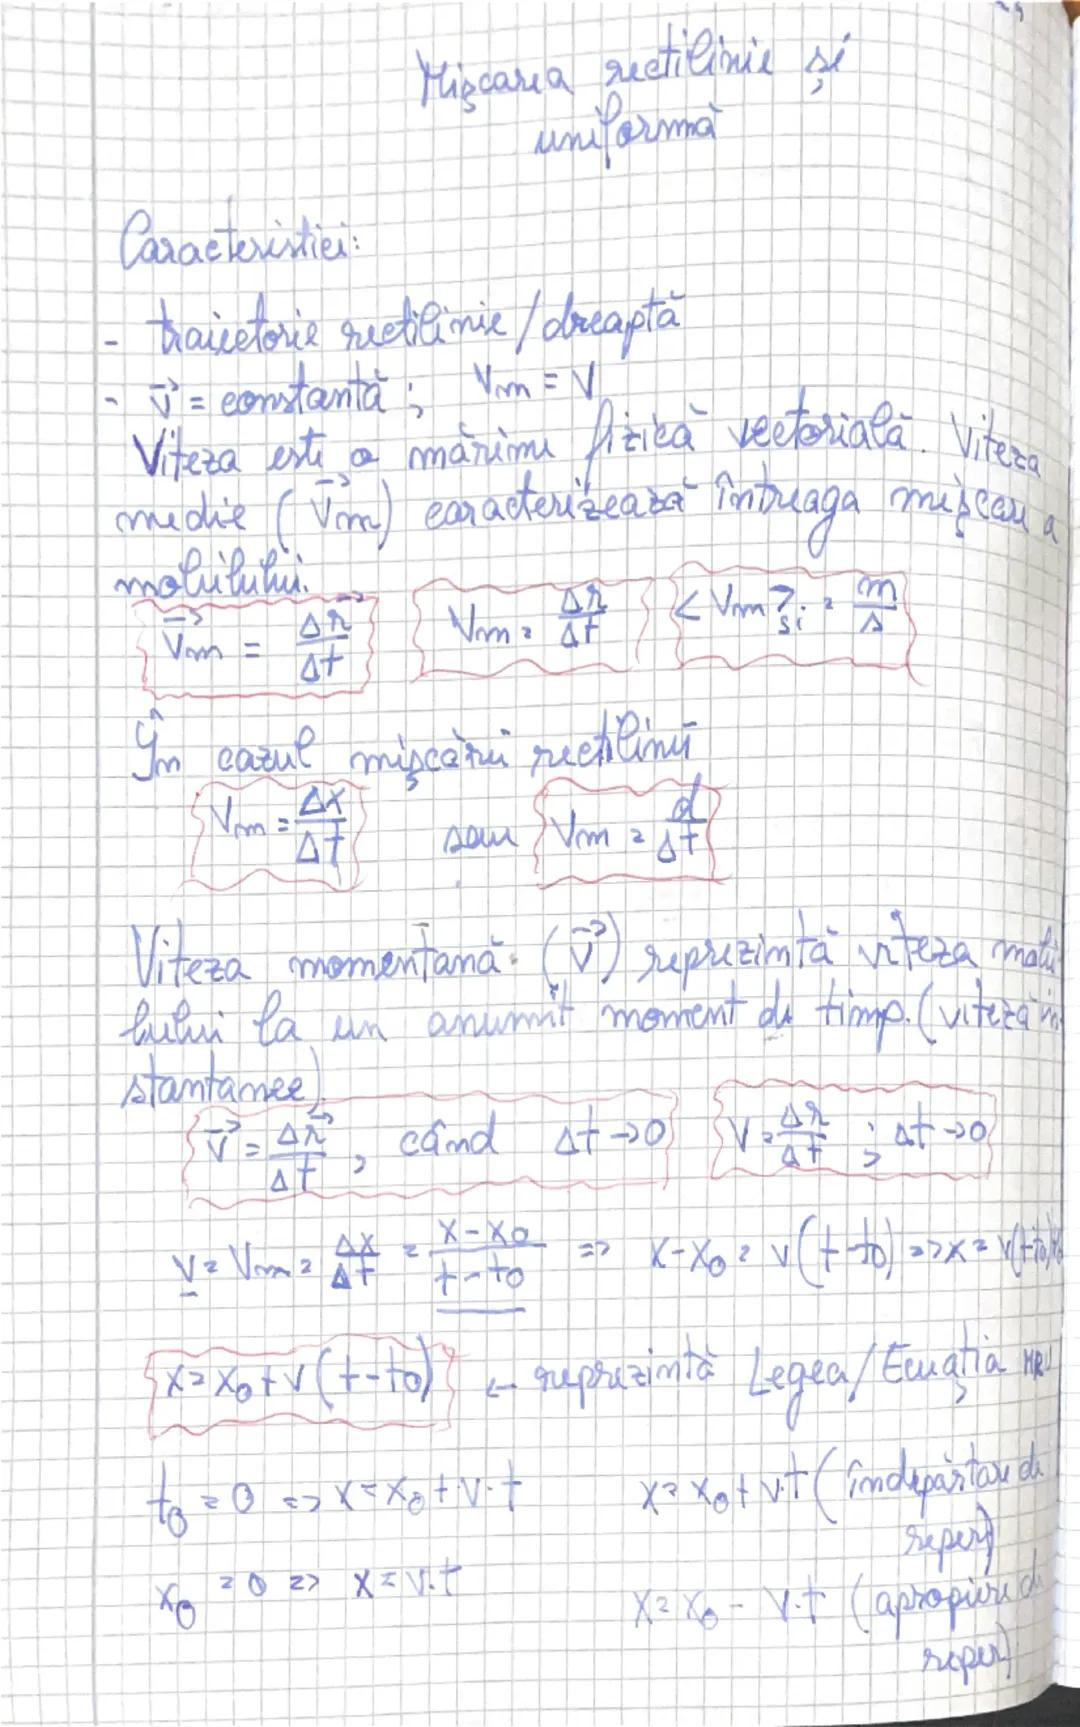 Mişcarea rectilinie şi
uniformă
Caracteristici:
- traiectorie rectilinie/dreaptă
- v⃗ = constantă ; Vm = V
Viteza este o mărime fizică vectorială. Viteza
medie (v⃗m) caracterizează întreaga mişcare a
mobilului.
v⃗m = Δr⃗/Δt Vm = Δr/Δt <Vm>si = m/s
În cazul mişcării rectilinii
Vm = Δx/Δt sau Vm = d/Δt
Viteza momentană (v⃗) reprezintă viteza mobi
lului la un anumit moment de timp. (viteză in
stantanee)
v⃗ = Δr⃗/Δt , când Δt→0 V = Δr/Δt ; Δt→0
V = Vm = Δx/Δt = x-x0/t-t0 => x-x0 = v(t-t0) => x = v(t-t0)
x = x0 + v(t-t0) ← reprezintă Legea/Ecuaţia MRU
t0 = 0 => x = x0 + v·t x = x0 + v·t (îndepărtare de
reper)
x0 = 0 => x = v·t x = x0 - v·t (apropiere de
reper)